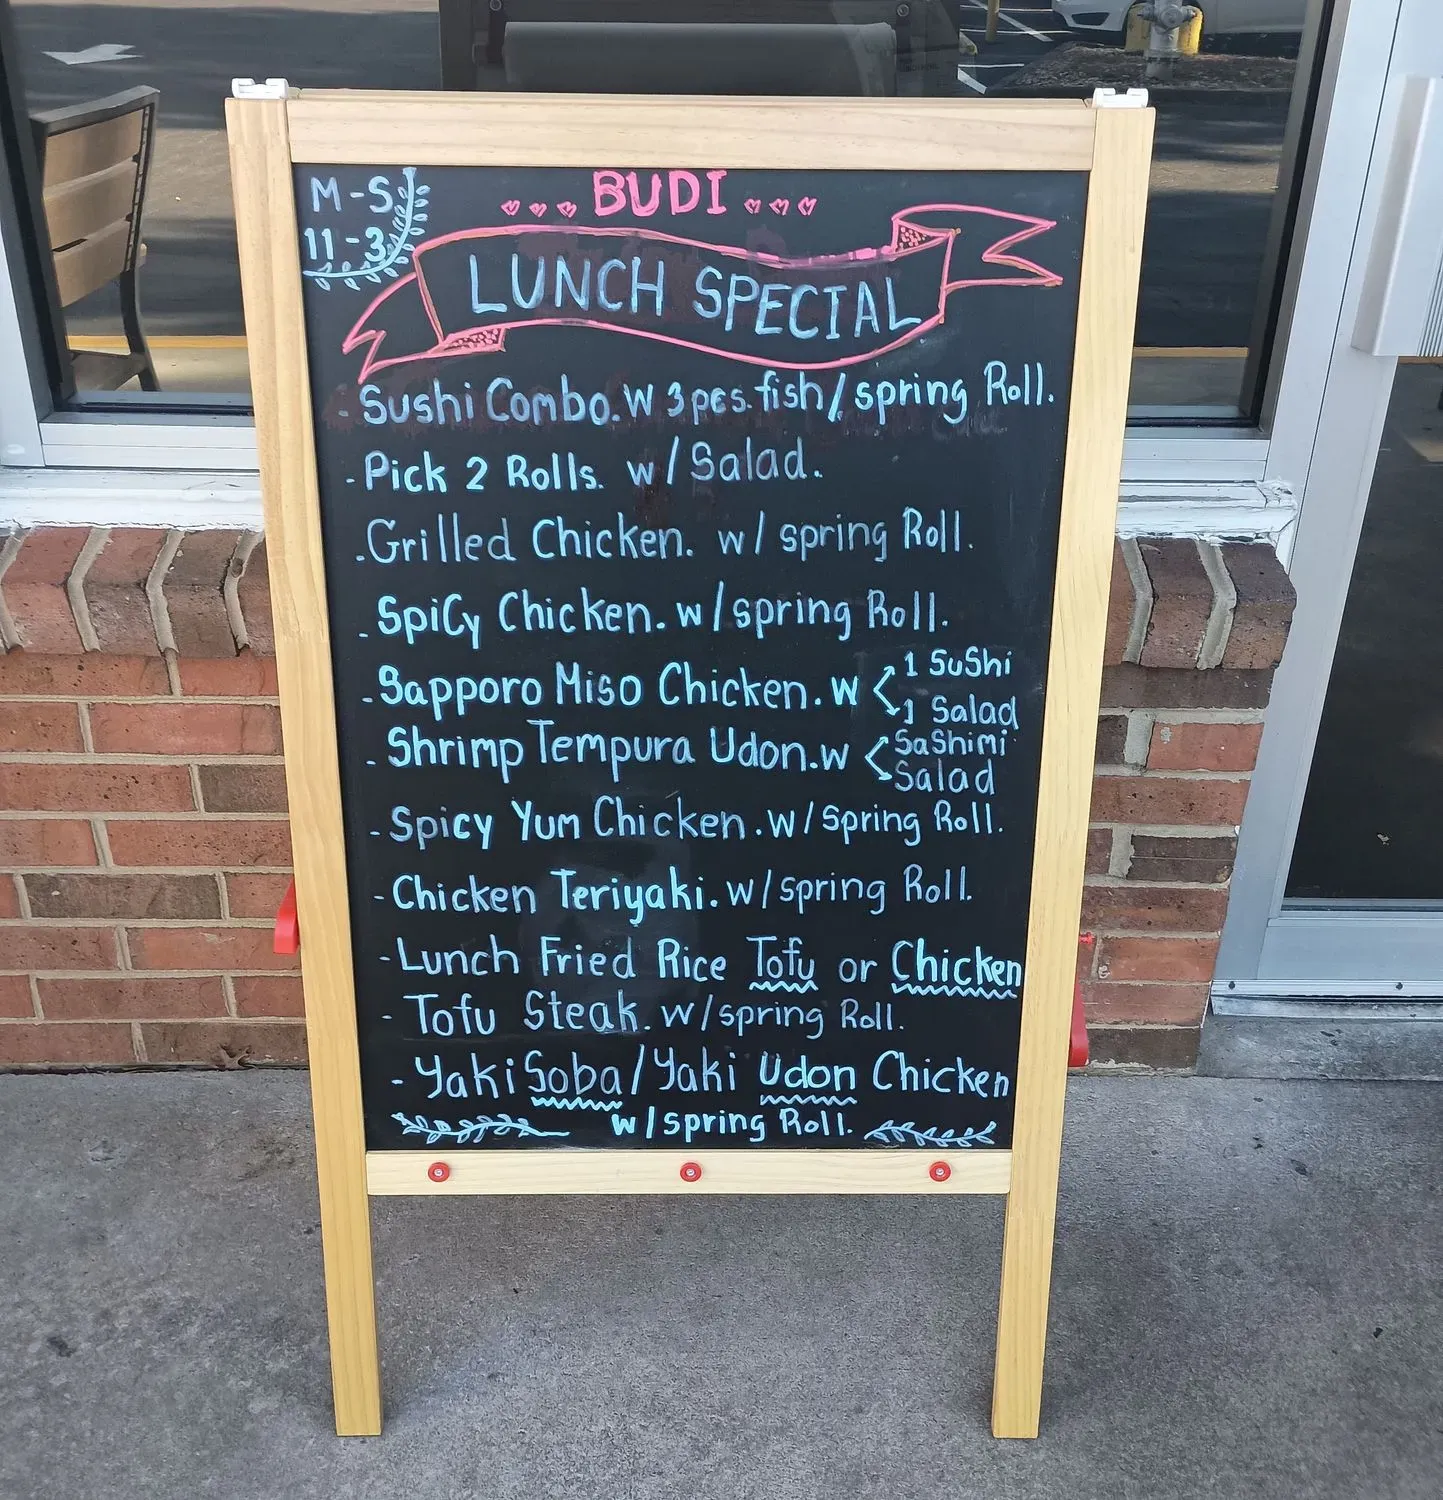 M-S
11-3
BUDI
LUNCH SPECIAL
- Sushi Combo. w 3 pcs. fish/spring Roll.
- Pick 2 Rolls. w/Salad.
- Grilled Chicken. w/ spring Roll.
- SpiCy Chicken. w/spring Roll.
- Sapporo Miso Chicken. w 1 SuShi
1 Salad
- Shrimp Tempura Udon. w SaShimi
Salad
- Spicy Yum Chicken. w/spring Roll.
- Chicken Teriyaki. w/spring Roll.
- Lunch Fried Rice Tofu or Chicken
- Tofu Steak. w/spring Roll.
- Yaki Soba/Yaki Udon Chicken
w/spring Roll.